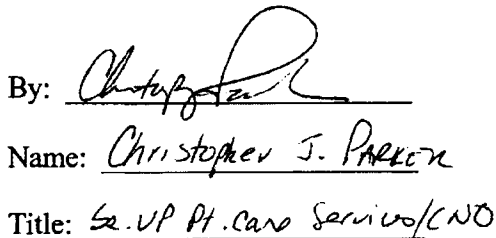 By:
Name: Christopher J. PARKER
Title: Sr. VP Pt. Care Services/CNO